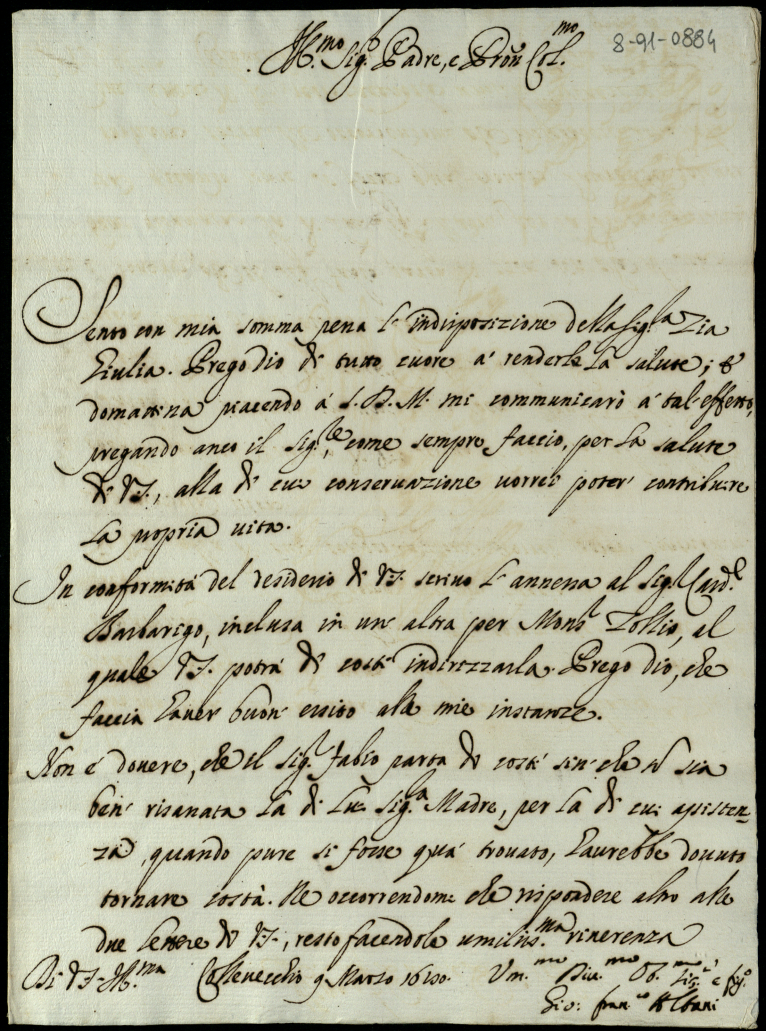 8-91-0884
Ill.mo Sig.r Padre, e Pron Col.mo
Sento con mia somma pena l'indisposizione della Sig.ra Zia
Giulia. Prego Dio di tutto cuore à renderle la salute; e
domattina piacendo à S. D. M. mi communicarò à tal effetto,
pregando anco il Sig.re, come sempre faccio, per la salute
di V.S., alla di cui conservazione vorrei poter contribuire
la propria vita.
In conformità del desiderio di V.S. scrivo l'annessa al Sig.r Card.l
Barbarigo, inclusa in un'altra per Mons.r Zollio, al
quale V.S. potrà di costì indirizzarla. Prego Dio, che
faccia haver buon esito alle mie instanze.
Non è dovere, che il Sig.r Fabio parta di costì sin che non sia
ben risanata la di lui Sig.ra Madre, per la di cui assisten-
za, quando pure si fosse quà trovato, haurebbe dovuto
tornare costà. Ne occorrendomi che rispondere altro alle
due lettere di V.S., resto facendole umiliss.ma riverenza
Di V.S. Ill.ma Collevecchio 9 Marzo Um.mo Div.mo Ob.mo e fig.o
Gio: Fran.co Albani